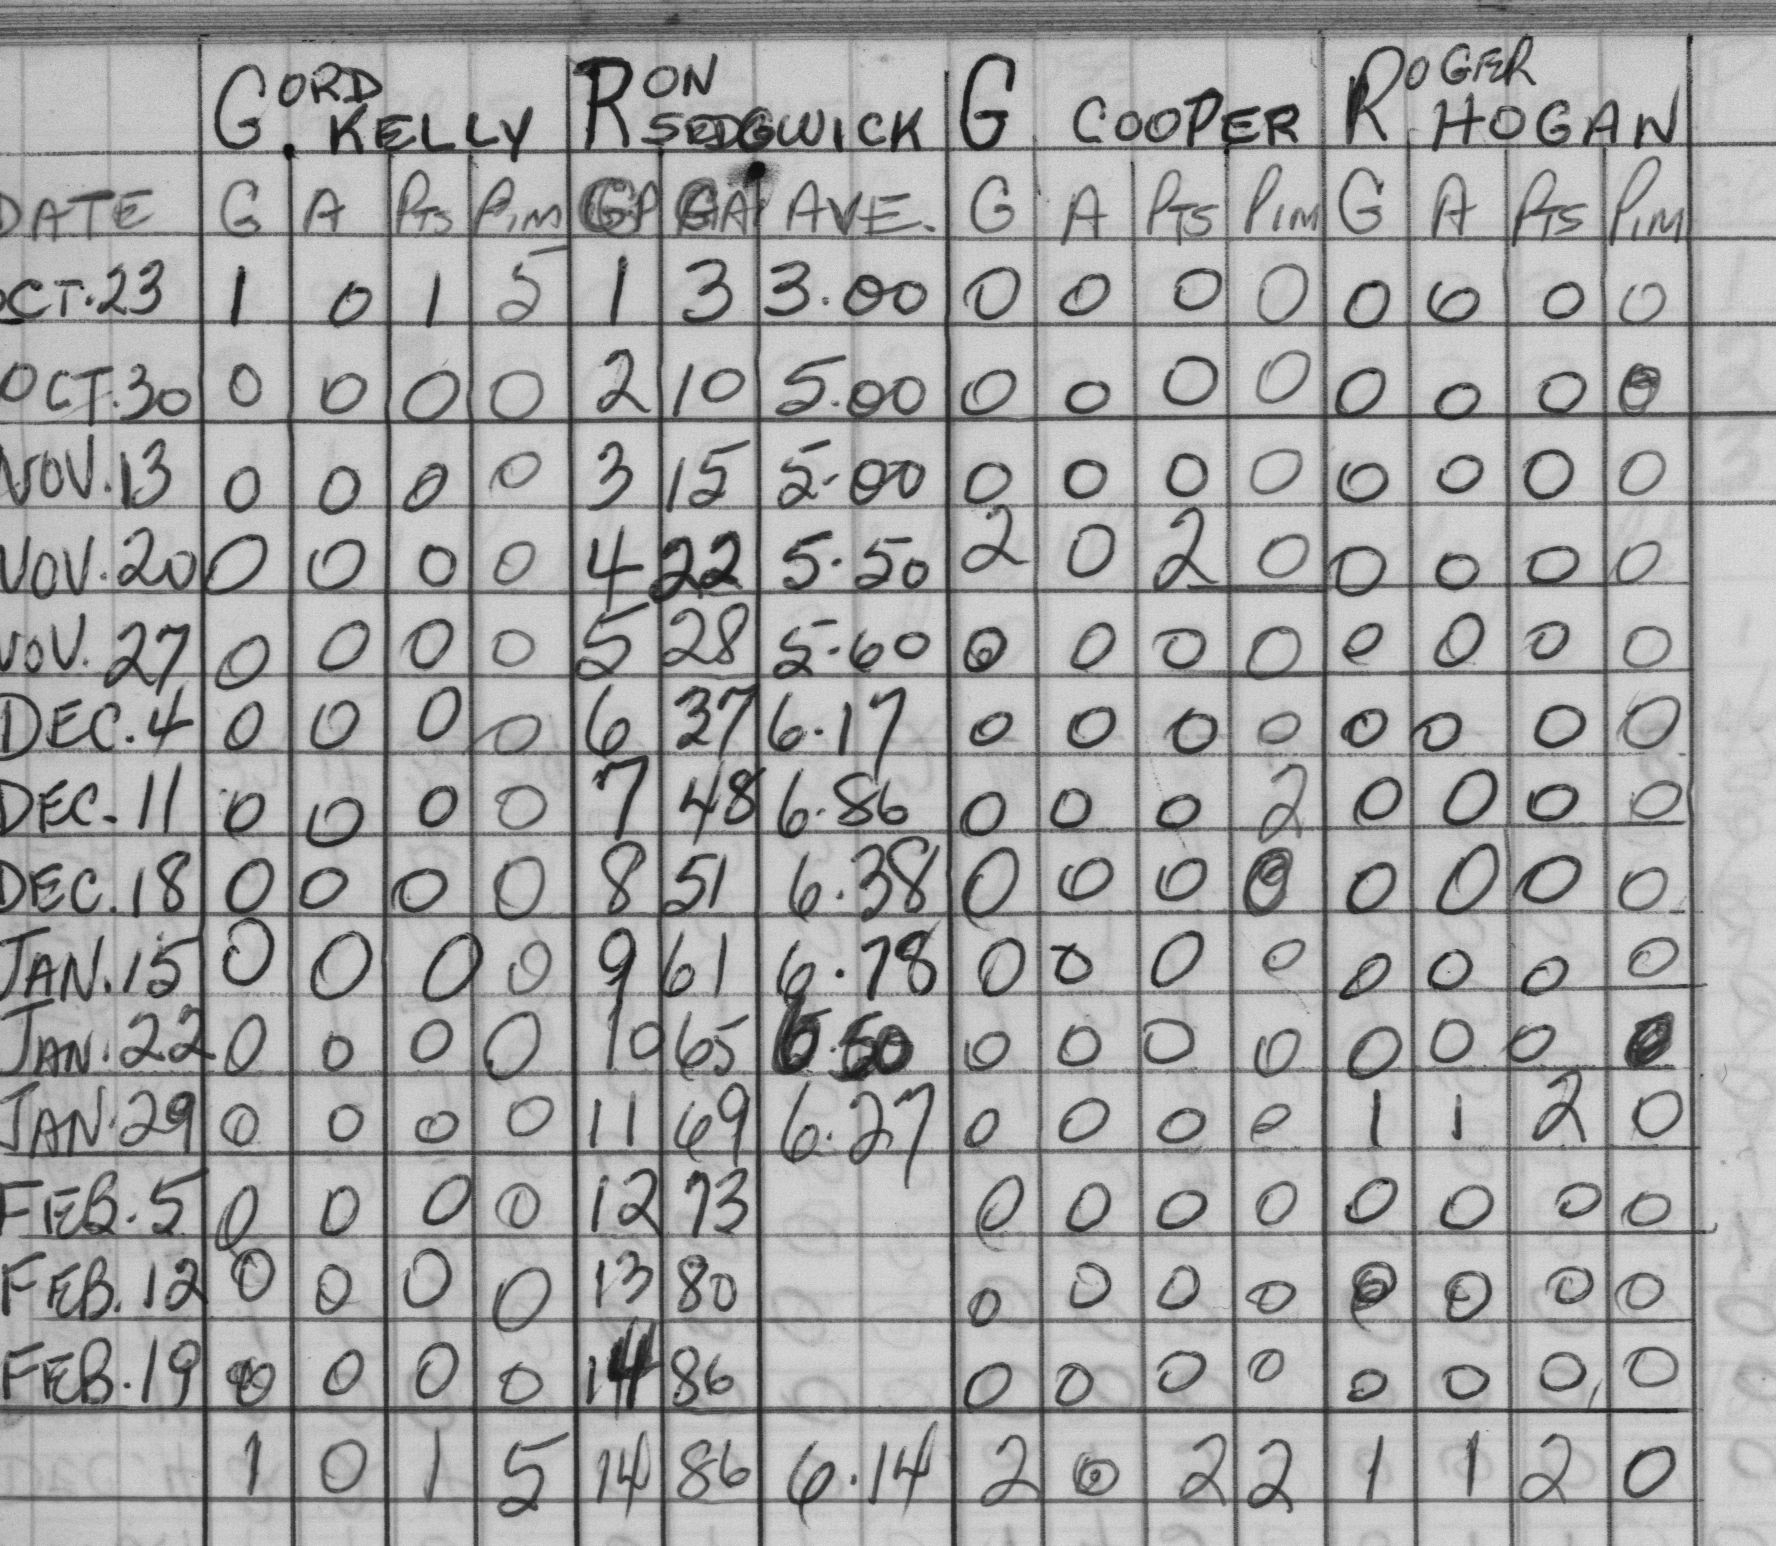 GORD KELLY RON SEDGWICK G COOPER ROGER HOGAN
DATE G A PTS PIM GP GA AVE. G A PTS PIM G A PTS PIM
OCT.23 1 0 1 5 1 3 3.00 0 0 0 0 0 0 0 0
OCT.30 0 0 0 0 2 10 5.00 0 0 0 0 0 0 0 0
NOV.13 0 0 0 0 3 15 5.00 0 0 0 0 0 0 0 0
NOV.20 0 0 0 0 4 22 5.50 2 0 2 0 0 0 0 0
NOV.27 0 0 0 0 5 28 5.60 0 0 0 0 0 0 0 0
DEC.4 0 0 0 0 6 37 6.17 0 0 0 0 0 0 0 0
DEC.11 0 0 0 0 7 48 6.86 0 0 0 2 0 0 0 0
DEC.18 0 0 0 0 8 51 6.38 0 0 0 0 0 0 0 0
JAN.15 0 0 0 0 9 61 6.78 0 0 0 0 0 0 0 0
JAN.22 0 0 0 0 10 65 6.50 0 0 0 0 0 0 0 0
JAN.29 0 0 0 0 11 69 6.27 0 0 0 0 1 1 2 0
FEB.5 0 0 0 0 12 73 0 0 0 0 0 0 0 0
FEB.12 0 0 0 0 13 80 0 0 0 0 0 0 0 0
FEB.19 0 0 0 0 14 86 0 0 0 0 0 0 0 0
1 0 1 5 14 86 6.14 2 0 2 2 1 1 2 0